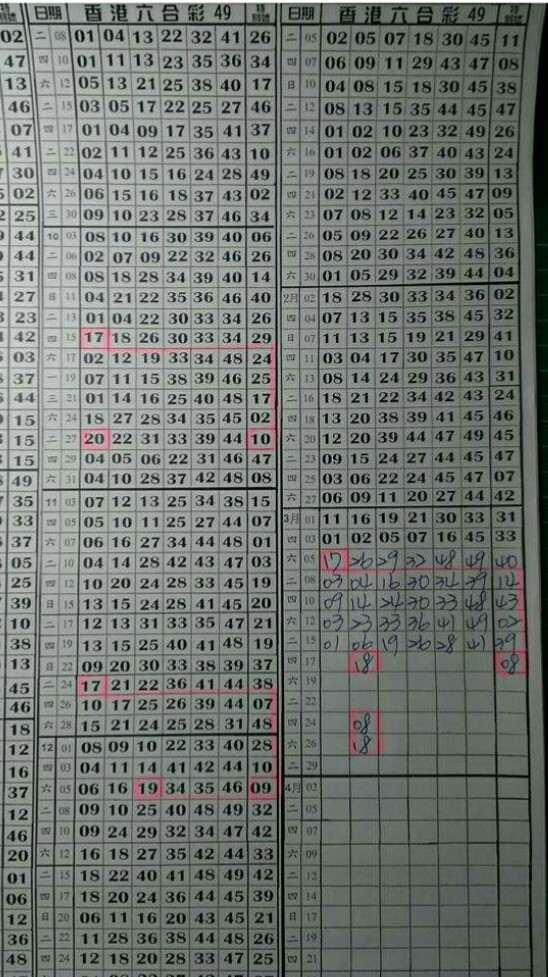 特別號 日期 香港六合彩 49 特別號
02 二 08 01 04 13 22 32 41 26
47 四 10 01 11 13 23 35 36 34
13 六 12 05 13 21 25 38 40 17
46 二 15 03 05 17 22 25 27 46
07 四 17 01 04 09 17 35 41 37
41 二 22 02 11 12 25 36 43 10
30 四 24 04 10 15 16 24 28 49
02 六 26 06 15 16 18 37 43 02
25 三 30 09 10 23 28 37 46 34
44 10 03 08 10 16 30 39 40 06
44 二 06 02 07 09 22 32 46 26
31 四 08 08 18 28 34 39 40 14
27 日 11 04 21 22 35 36 46 40
23 二 13 01 04 22 30 33 34 26
42 四 15 17 18 26 30 33 34 29
03 六 17 02 12 19 33 34 48 24
37 一 19 07 11 15 38 39 46 25
44 三 21 01 14 16 25 40 48 17
15 六 24 18 27 28 34 35 45 02
15 二 27 20 22 31 33 39 44 10
15 四 29 04 05 06 22 31 46 47
49 六 31 04 10 28 37 42 48 08
35 11 03 07 12 13 25 34 38 15
33 四 05 05 10 11 25 27 44 07
37 六 07 06 16 27 34 44 48 01
05 二 10 04 14 28 42 43 47 03
25 四 12 10 20 24 28 33 45 19
39 日 15 13 15 24 28 41 45 20
10 二 17 12 13 31 33 35 47 21
38 四 19 13 15 25 40 41 48 19
13 日 22 09 20 30 33 38 39 37
45 二 24 17 21 22 36 41 44 38
46 四 26 10 17 25 26 39 44 07
18 六 28 15 21 24 25 28 31 48
12 12 01 08 09 10 22 33 40 28
16 四 03 04 11 14 41 42 44 10
37 六 05 06 16 19 34 35 46 09
12 二 08 09 10 25 40 48 49 32
46 四 10 09 24 29 32 34 47 42
20 六 12 16 18 27 35 42 44 33
01 二 15 18 22 40 41 48 49 42
06 四 17 18 20 24 36 44 45 39
12 日 20 06 11 16 20 43 45 21
36 二 22 11 28 36 38 44 48 26
48 四 24 12 18 20 28 33 47 25
日期 香港六合彩 49 特別號
二 05 02 05 07 18 30 45 11
四 07 06 09 11 29 43 47 08
日 10 04 08 15 18 30 45 38
二 12 08 13 15 35 44 45 47
四 14 01 02 10 23 32 49 26
六 16 01 02 06 37 40 43 24
二 19 08 18 20 25 30 39 13
四 21 02 12 33 40 45 47 09
六 23 07 08 12 14 23 32 05
二 26 05 09 22 26 27 40 13
四 28 08 20 30 34 42 48 36
六 30 01 05 29 32 39 44 04
2月 02 18 28 30 33 34 36 02
四 04 07 13 15 35 38 45 32
日 07 11 13 15 19 21 29 41
四 11 03 04 17 30 35 47 10
六 13 08 14 24 29 36 43 31
二 16 18 21 22 34 42 43 24
四 18 13 20 38 39 41 45 46
六 20 12 20 39 44 47 49 45
二 23 09 15 24 27 44 45 47
四 25 03 06 22 24 45 47 07
六 27 06 09 11 20 27 44 42
3月 01 11 16 19 21 30 33 31
四 03 01 03 05 07 16 45 33
六 05 17 26 29 32 48 49 40
二 08 03 04 16 30 34 39 14
四 10 09 14 24 30 33 48 43
六 12 03 23 33 36 41 49 02
二 15 01 06 19 26 28 41 39
四 17 18 08
六 19
二 22
四 24 08
六 26 18
二 29
4月 02
二 05
四 07
六 09
二 12
四 14
日 17
二 19
四 21